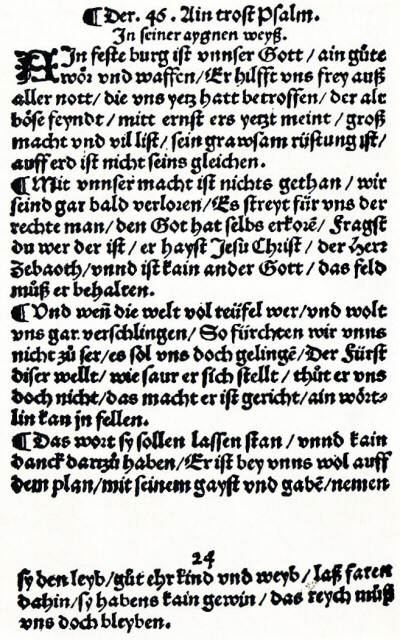 ¶ Der. 46. Ain trost Psalm.
In seiner aygnen weyß.
AIn feste burg ist vnnser Gott / ain gůte
wör vnd waffen / Er hilfft vns frey auß
aller nott / die vns yetz hatt betroffen / der alt
böse feyndt / mitt ernst ers yetzt meint / groß
macht vnd vil list / sein grawsam rüstung ist /
auff erd ist nicht seins gleichen.
¶ Mit vnnser macht ist nichts gethan / wir
seind gar bald verloren / Es streyt für vns der
rechte man / den Got hat selbs erkorē / Fragst
du wer der ist / er hayst Jesu Christ / der Herr
Zebaoth / vnnd ist kain ander Gott / das feld
můß er behalten.
¶ Vnd weñ die welt vol teüfel wer / vnd wolt
vns gar verschlingen / So fürchten wir vnns
nicht zů ser / es sol vns doch gelingē / Der Fürst
diser wellt / wie saur er sich stellt / thůt er vns
doch nicht / das macht er ist gericht / ain wört⸗
lin kan jn fellen.
¶ Das wort sy sollen lassen stan / vnnd kain
danck dartzů haben / Er ist bey vnns wol auff
dem plan / mit seinem gayst vnd gabē / nemen
24
sy den leyb / gůt ehr kind vnd weyb / laß faren
dahin / sy habens kain gewin / das reych můß
vns doch bleyben.